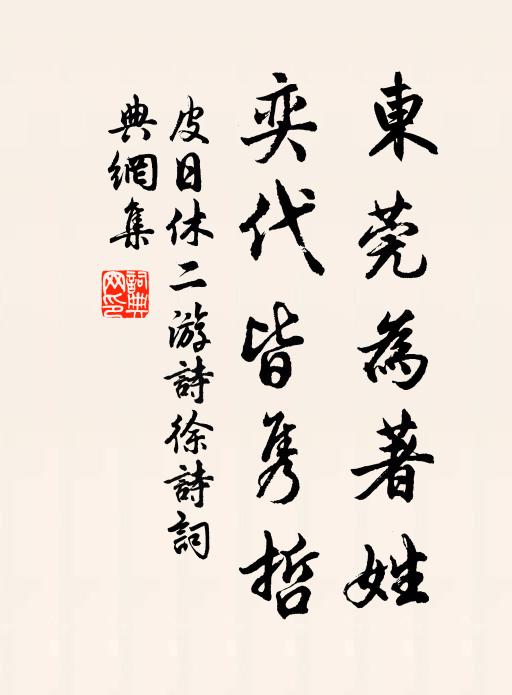 東莞為著姓
奕代皆雋哲
皮日休二游詩徐詩詞
典網集
詞典網印